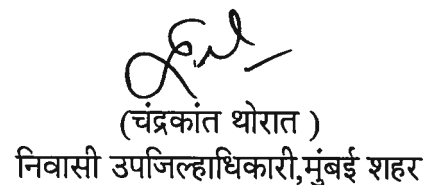 (चंद्रकांत थोरात )
निवासी उपजिल्हाधिकारी,मुंबई शहर